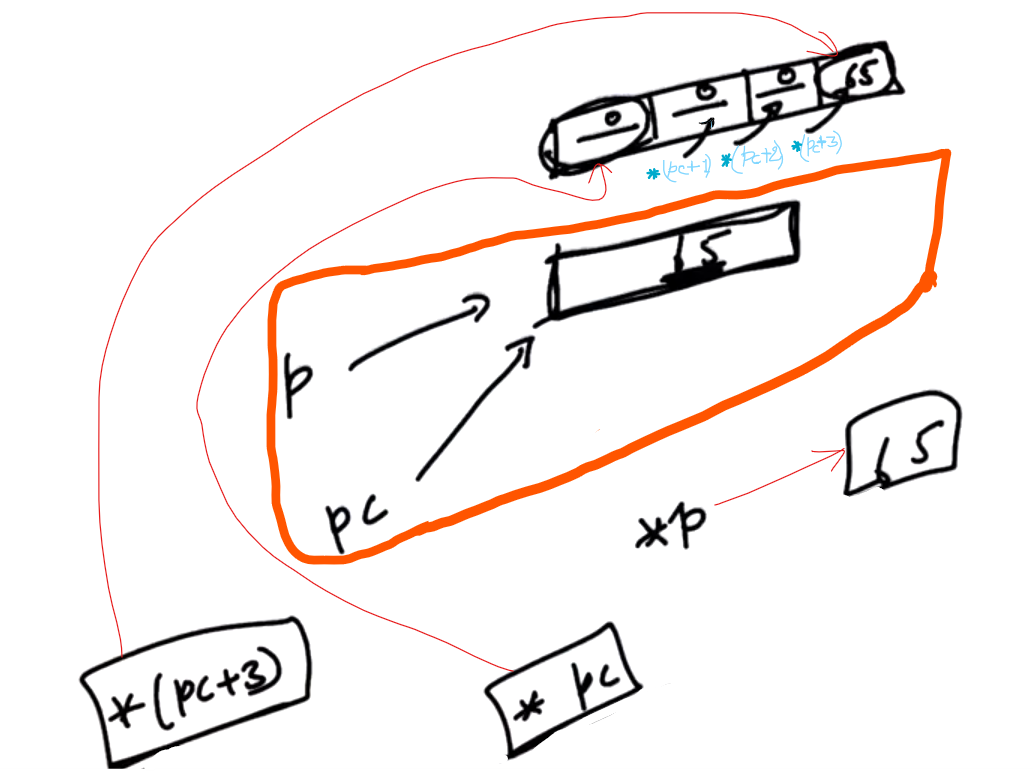 0 0 0 65
*(pc+1) *(pc+2) *(pc+3)
65
p
pc
65
*p
*(pc+3)
* pc